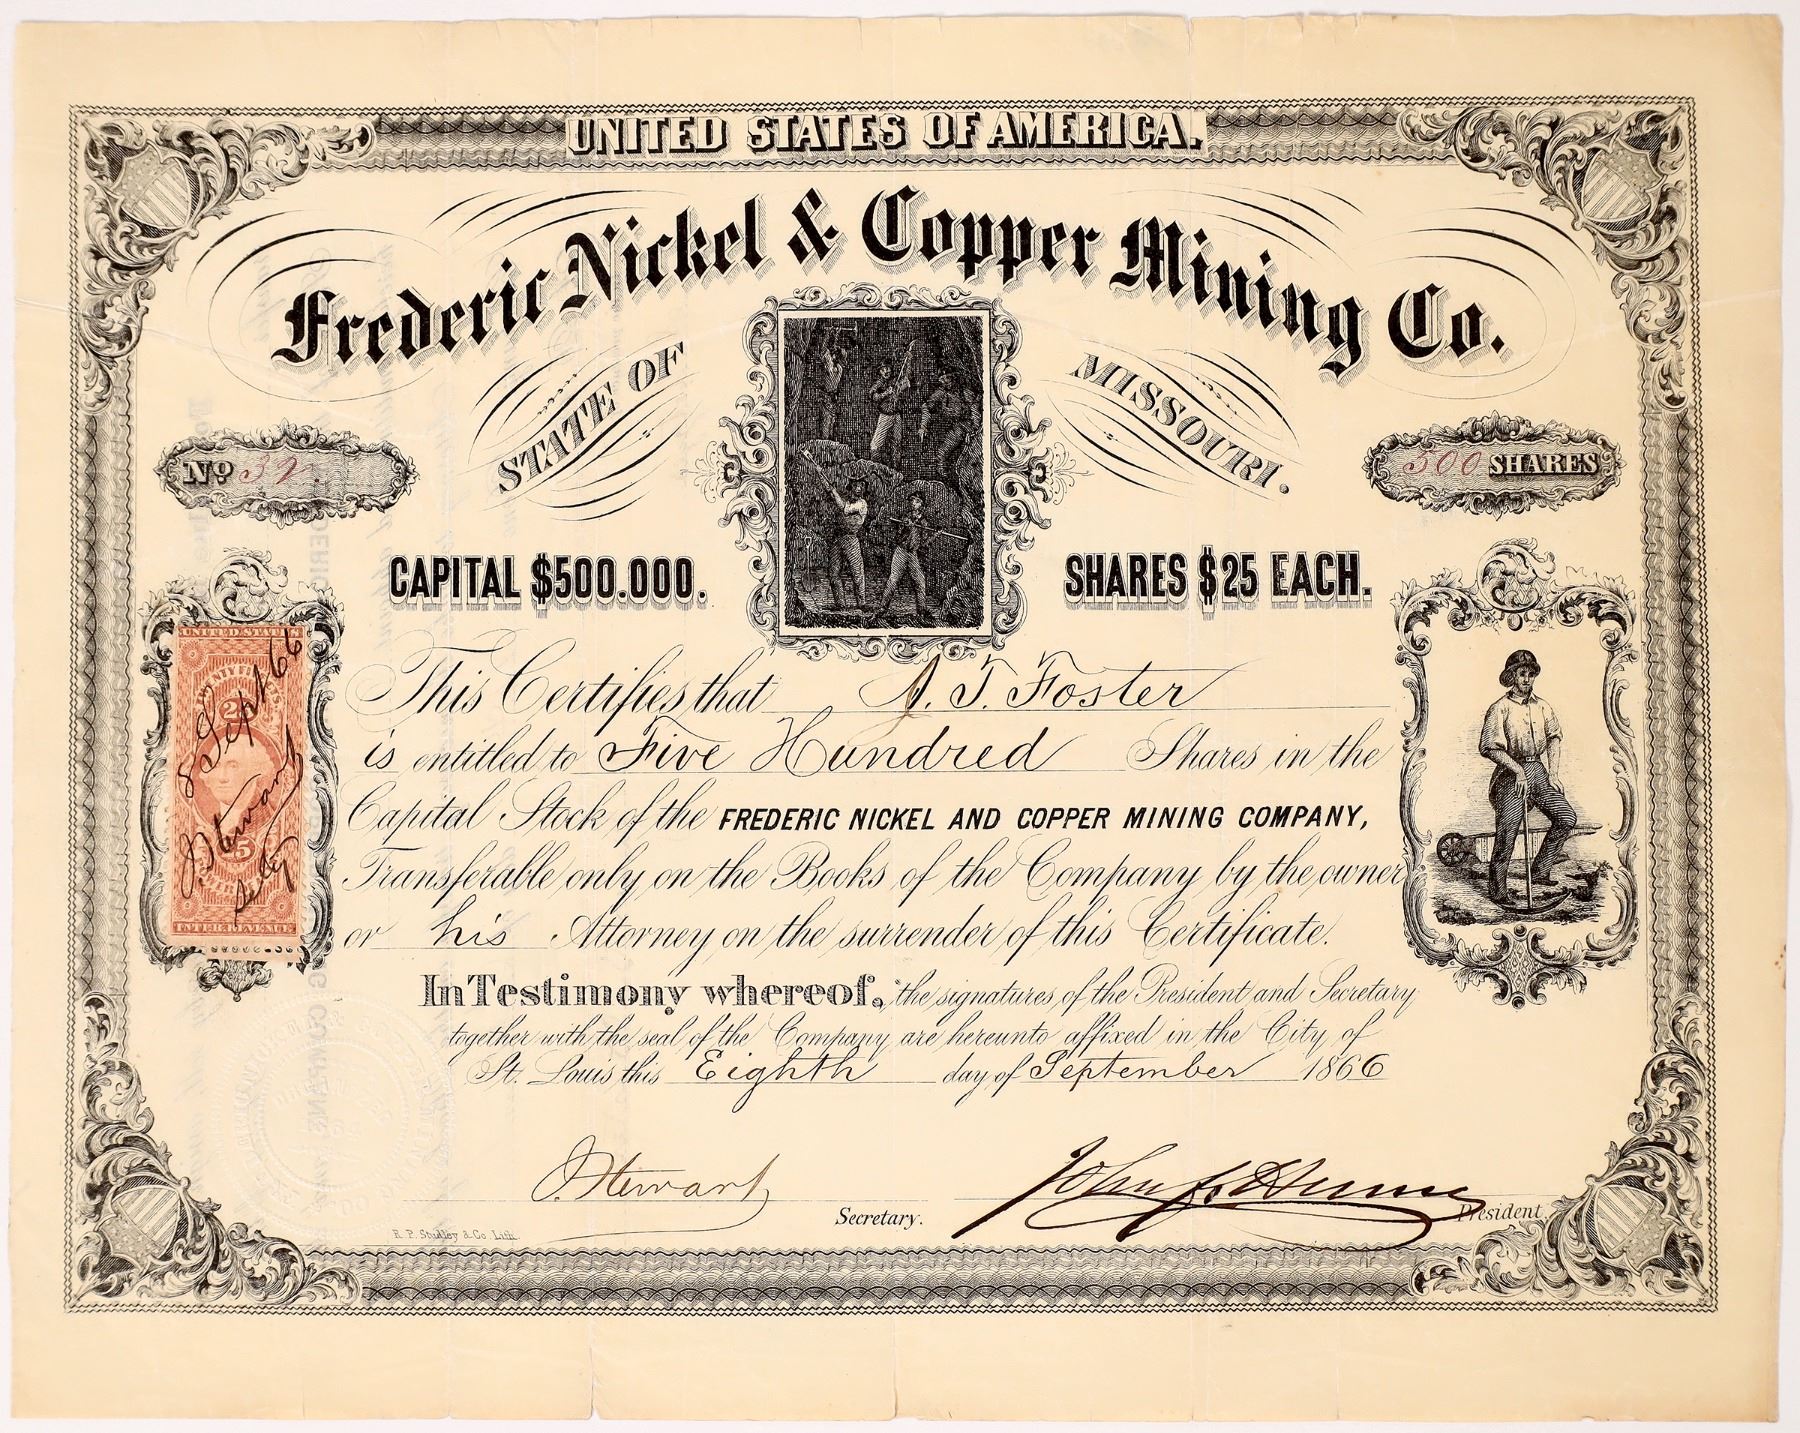 UNITED STATES OF AMERICA.
Frederic Nickel & Copper Mining Co.
STATE OF MISSOURI.
No 32.
500 SHARES
CAPITAL $500.000.
SHARES $25 EACH.
UNITED STATES
25
8 Sept 66
J Stewart
Secty
INTER. REVENUE
This Certifies that J. T. Foster
is entitled to Five Hundred Shares in the
Capital Stock of the FREDERIC NICKEL AND COPPER MINING COMPANY,
Transferable only on the Books of the Company by the owner
or his Attorney on the surrender of this Certificate.
In Testimony whereof, the signatures of the President and Secretary
together with the seal of the Company are hereunto affixed in the City of
St. Louis this Eighth day of September 1866
J Stewart
Secretary.
President.
R. P. Studley & Co. Lith.